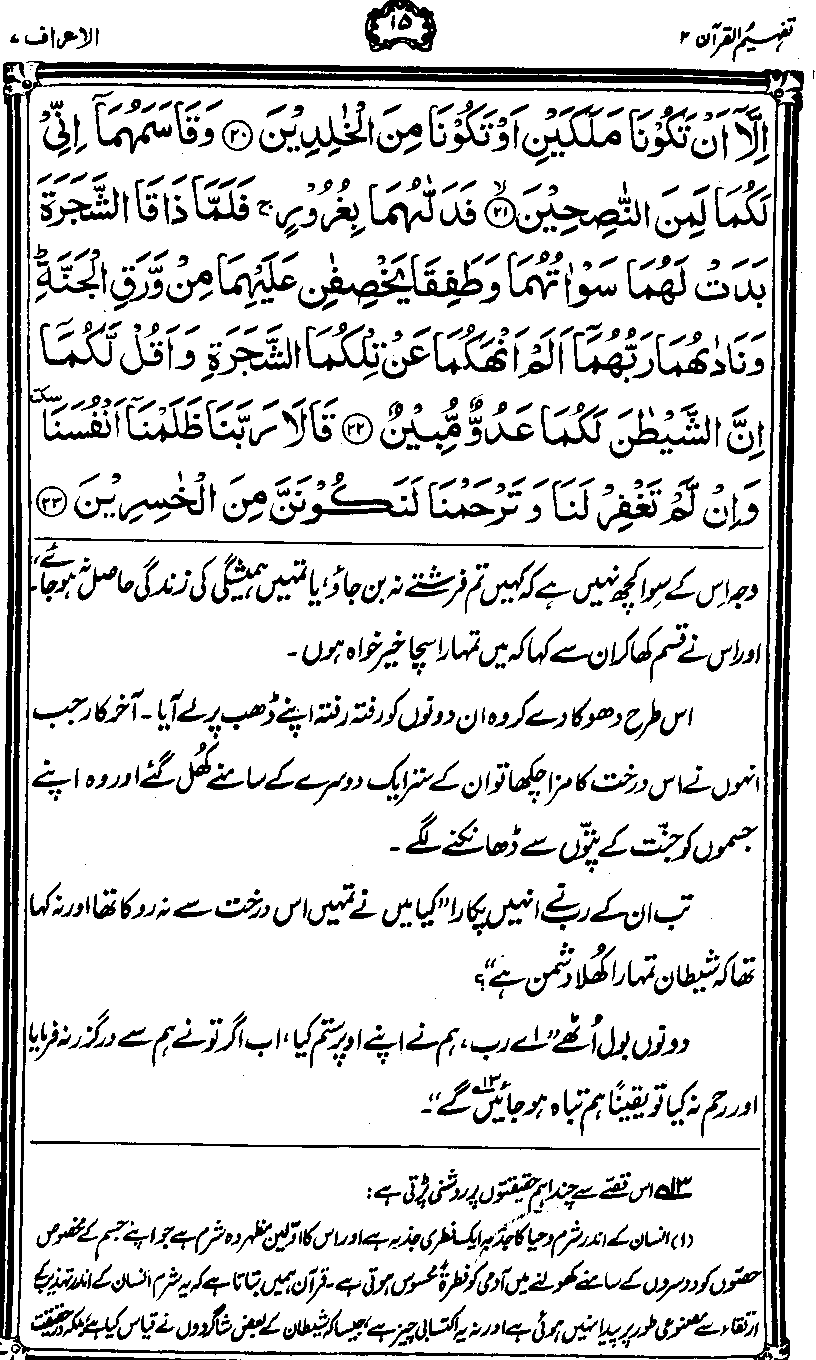 تفہیم القرآن ۲
۱۵
الاعراف ۷
اِلَّاۤ اَنْ تَكُوْنَا مَلَكَيْنِ اَوْ تَكُوْنَا مِنَ الْخٰلِدِيْنَ ﴿۲۰﴾ وَقَاسَمَهُمَاۤ اِنِّيْ
لَكُمَا لَمِنَ النّٰصِحِيْنَ ﴿۲۱﴾ۙ فَدَلّٰىهُمَا بِغُرُوْرٍ ۚ فَلَمَّا ذَاقَا الشَّجَرَةَ
بَدَتْ لَهُمَا سَوْاٰتُهُمَا وَطَفِقَا يَخْصِفٰنِ عَلَيْهِمَا مِنْ وَّرَقِ الْجَنَّةِ ؕ
وَنَادٰىهُمَا رَبُّهُمَاۤ اَلَمْ اَنْهَكُمَا عَنْ تِلْكُمَا الشَّجَرَةِ وَاَقُلْ لَّكُمَاۤ
اِنَّ الشَّيْطٰنَ لَكُمَا عَدُوٌّ مُّبِيْنٌ ﴿۲۲﴾ قَالَا رَبَّنَا ظَلَمْنَاۤ اَنْفُسَنَا سكتة
وَاِنْ لَّمْ تَغْفِرْ لَنَا وَتَرْحَمْنَا لَنَكُوْنَنَّ مِنَ الْخٰسِرِيْنَ ﴿۲۳﴾
وجہ اِس کے سوا کچھ نہیں ہے کہ کہیں تم فرشتے نہ بن جاؤ، یا تمہیں ہمیشگی کی زندگی حاصل نہ ہو جائے“۔
اور اس نے قسم کھا کر ان سے کہا کہ میں تمہارا سچا خیر خواہ ہوں۔
اس طرح دھوکا دے کر وہ ان دونوں کو رفتہ رفتہ اپنے ڈھب پر لے آیا۔ آخر کار جب
انہوں نے اس درخت کا مزا چکھا تو ان کے ستر ایک دوسرے کے سامنے کُھل گئے اور وہ اپنے
جسموں کو جنّت کے پتّوں سے ڈھانکنے لگے۔
تب ان کے رب نے انہیں پکارا ”کیا میں نے تمہیں اس درخت سے نہ روکا تھا اور نہ کہا
تھا کہ شیطان تمہارا کُھلا دشمن ہے“؟
دونوں بول اُٹھے ”اے رب، ہم نے اپنے اوپر ستم کیا، اب اگر تو نے ہم سے درگزر نہ فرمایا
اور رحم نہ کیا تو یقیناً ہم تباہ ہو جائیں۱۳ گے“۔
۱۳ اس قصّے سے چند اہم حقیقتوں پر روشنی پڑتی ہے:
(۱) انسان کے اندر شرم و حیا کا جذبہ ایک فطری جذبہ ہے اور اس کا اوّلین مظہر وہ شرم ہے جو اپنے جسم کے مخصوص
حصّوں کو دوسروں کے سامنے کھولنے میں آدمی کو فطرۃً محسوس ہوتی ہے۔ قرآن ہمیں بتاتا ہے کہ یہ شرم انسان کے اندر تہذیب کے
ارتقاء سے مصنوعی طور پر پیدا نہیں ہوئی ہے اور نہ یہ اکتسابی چیز ہے، جیسا کہ شیطان کے بعض شاگردوں نے قیاس کیا ہے، بلکہ درحقیقت